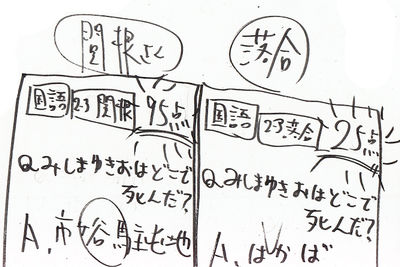 関根さん
国語 2-3 関根 95点
Q.みしまゆきおはどこで
死んだ?
A.市谷駐屯地
落合
国語 2-3 落合 25点
Q.みしまゆきおはどこで
死んだ?
A.はかば